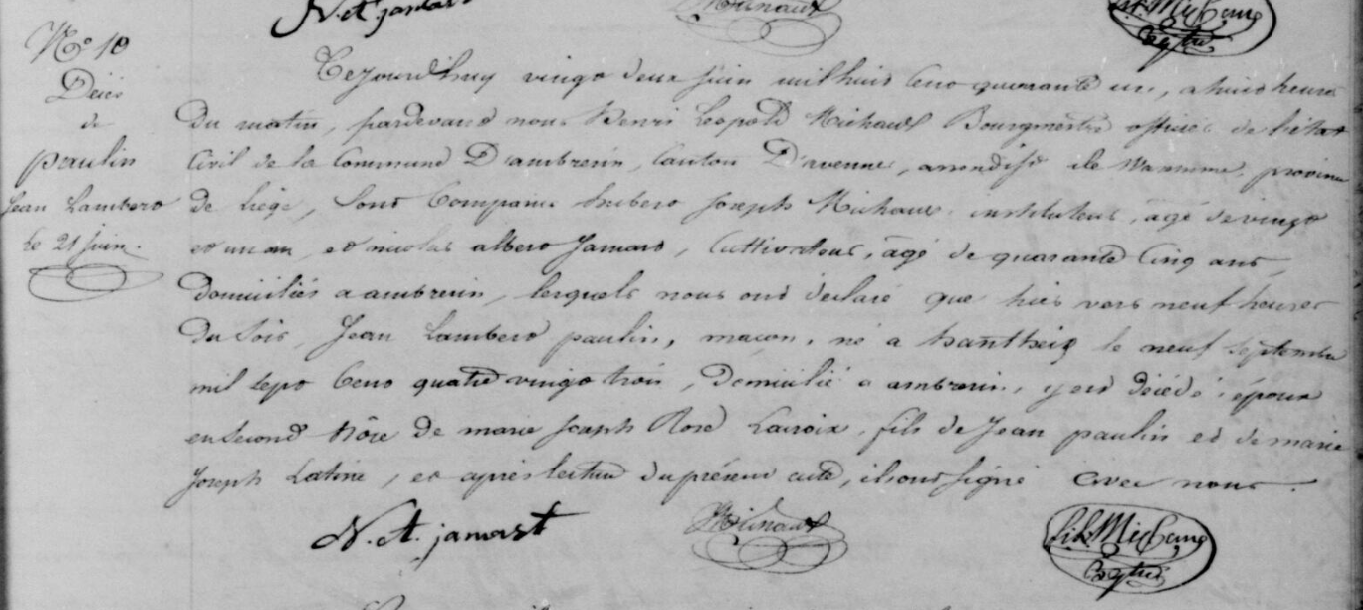 N. A. jamart
N° 10
Décès
de
paulin
Jean Lambert
le 21 juin.
Cejourd'huy vingt deux juin mil huit Cent quarante un, a huit heures
Du matin, pardevant nous Henri Leopold Michaux Bourgmestre officier de l'état
Civil de la Commune D'ambresin, Canton D'avenne, arrondisst de Waremme, province
de liège, sont Comparus hubert Joseph Michaux instituteur, âgé de vingt
et un an, et nicolas albert Jamart, Cultivateur, âgé de quarante Cinq ans,
Domiciliés a ambresin, lesquels nous ont déclaré que hier vers neuf heures
Du soir, Jean Lambert paulin, maçon, né a le neuf septembre
mil sept Cent quatre vingt trois, Domicilié a ambresin, y est décédé, époux
en second nôce de marie Joseph Rose Lacroix, fils de Jean paulin et de marie
Joseph Latine, et après lecture du présent acte, ils ont signé avec nous.
N. A. jamart Michaux